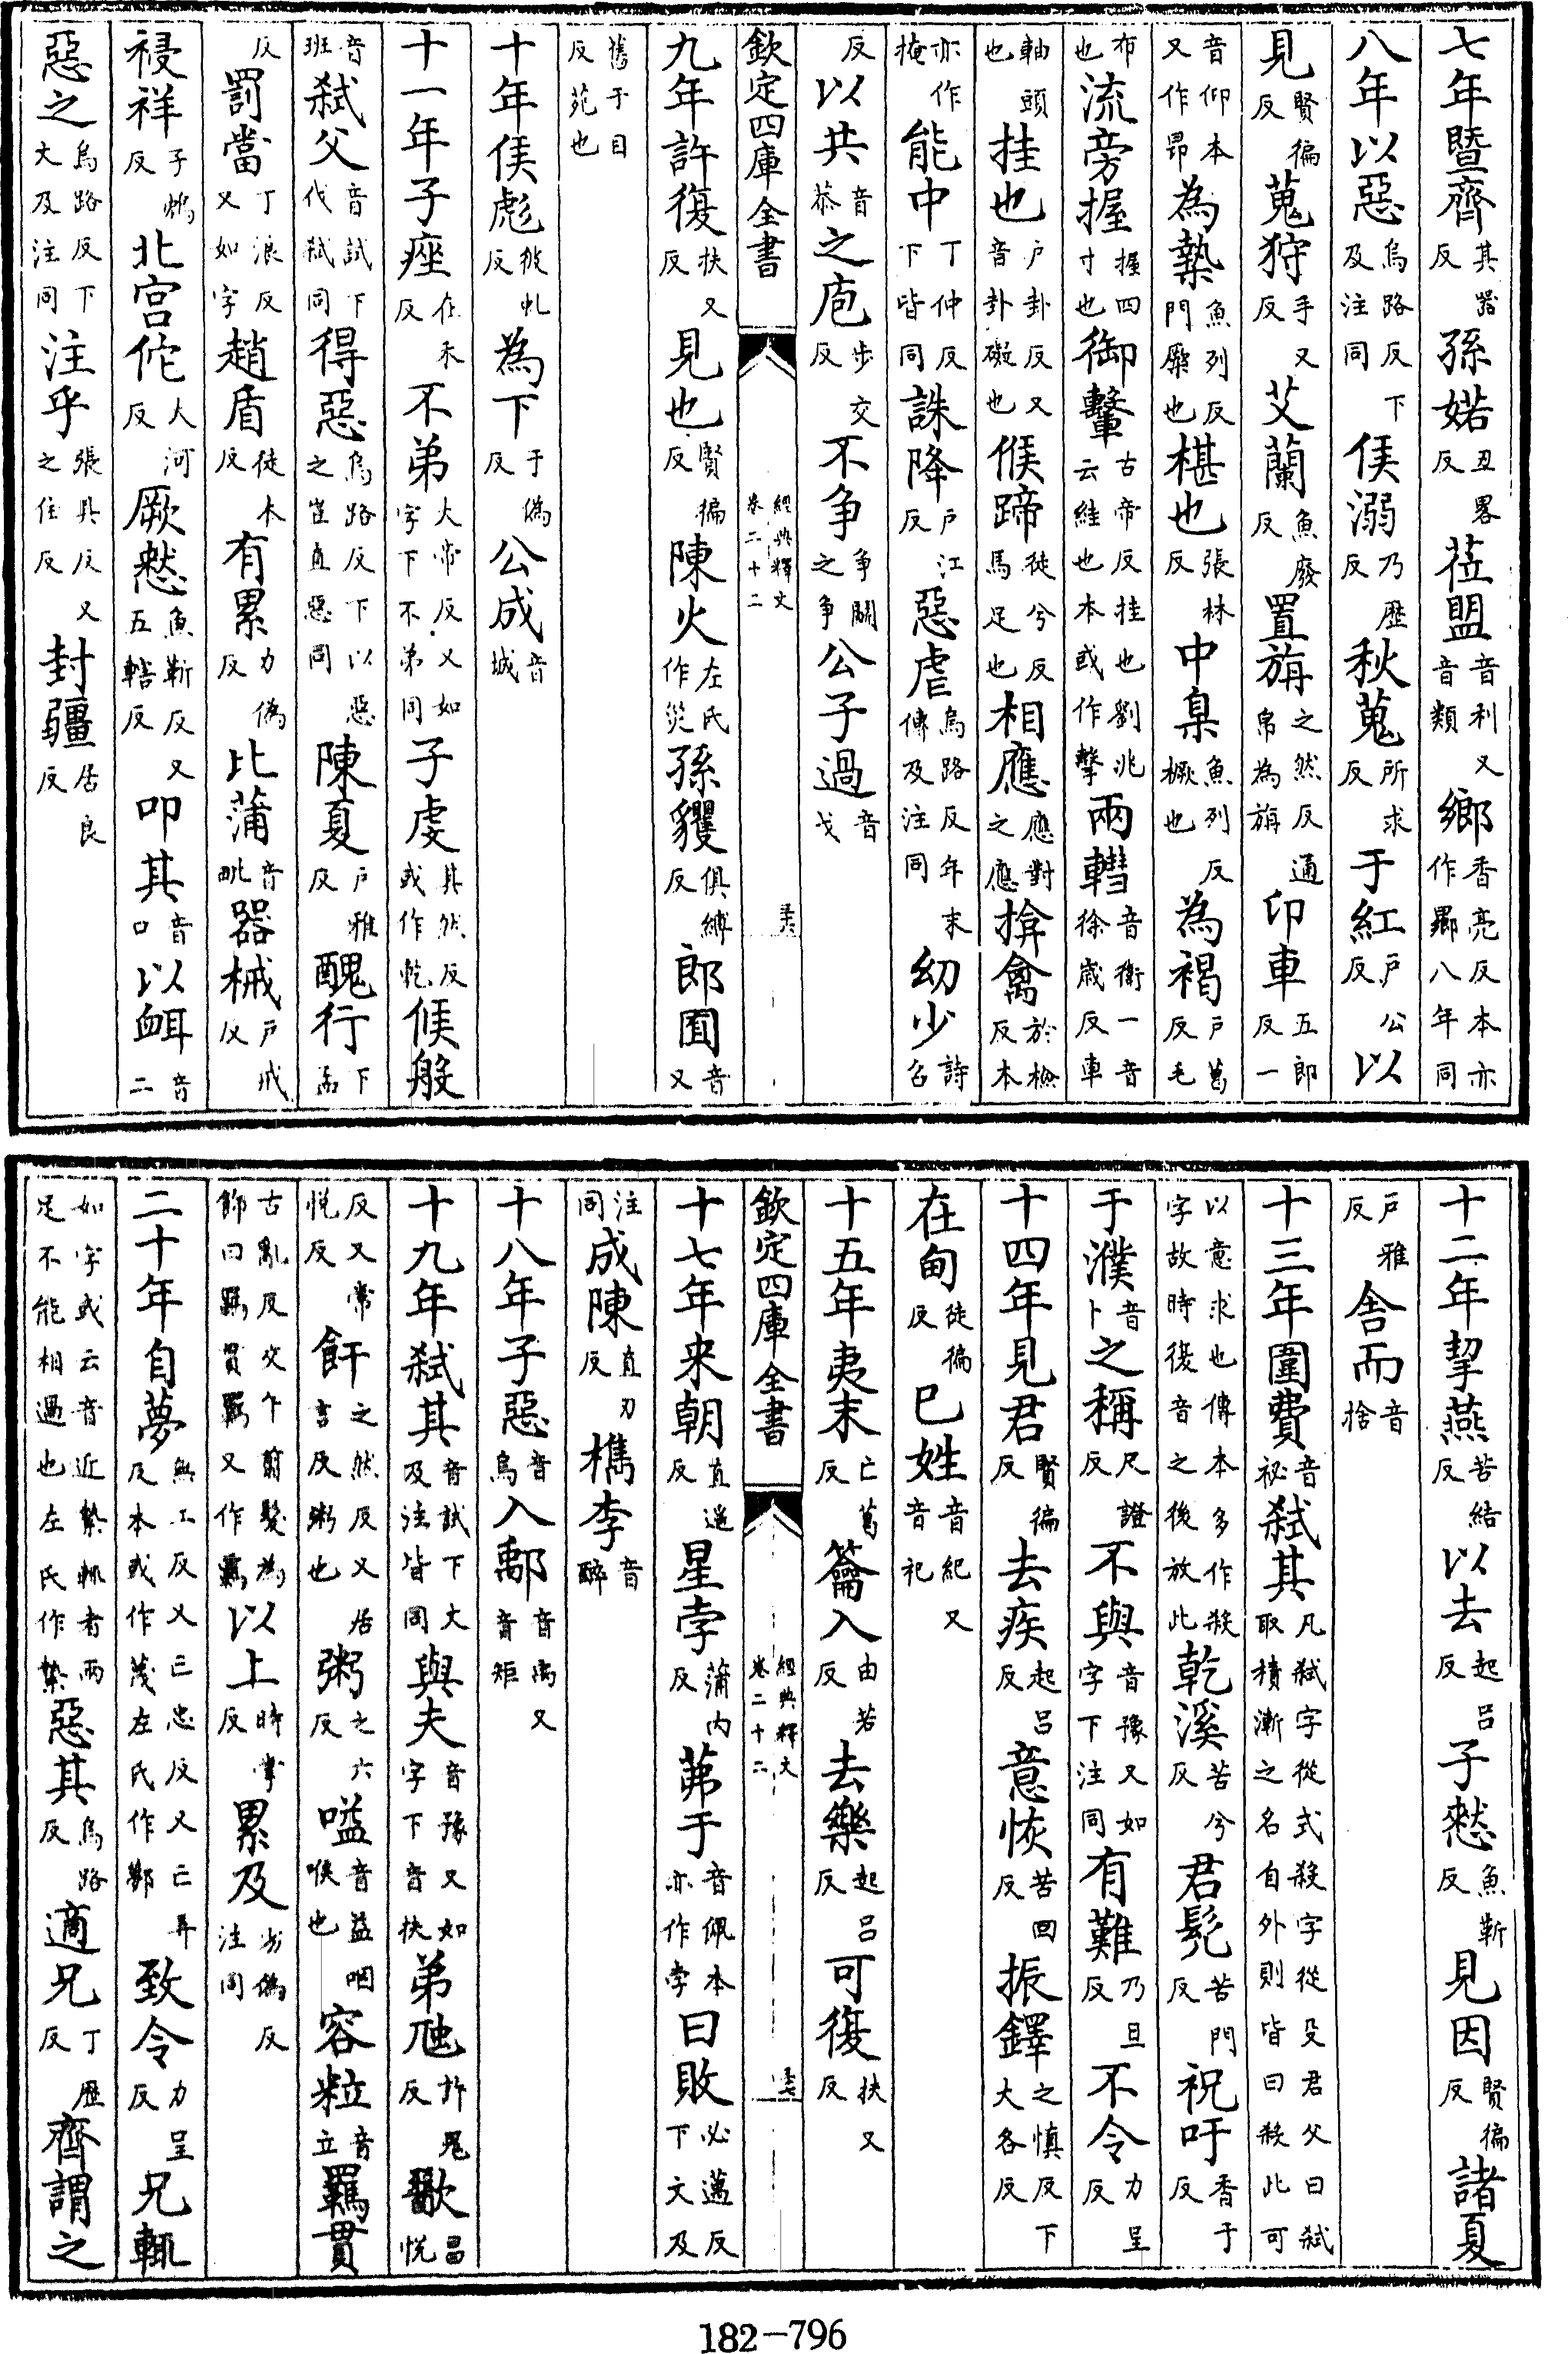 七年暨齊其器反孫婼丑畧反莅盟音利又音類鄉香亮反本亦作曏八年同
八年以惡烏路反下及注同侯溺乃歷反秋蒐所求反于紅戶公反以
見賢徧反蒐狩手又反艾蘭魚廢反置旃之然反通帛為旃卬車五郎反一
音仰本又作昻為槷魚列反門橜也椹也張林反中臬魚列反橛也為褐戶葛反毛
布也流旁握握四寸也御轚古帝反挂也劉兆云絓也本或作擊兩轊音衛一音徐歲反車
軸頭也挂也戶卦反又音卦礙也候蹄徒兮反馬足也相應應對之應揜禽於檢反本
亦作掩能中丁仲反下皆同誅降戶江反惡虐烏路反年末傳及注同幼少詩召
反以共音恭之庖步交反不争争鬬之争公子過音戈
欽定四庫全書 經典釋文 卷二十二
九年許復扶又反見也賢徧反陳火左氏作災孫貜俱縛反郎囿音又
舊于目反苑也
十年侯彪彼虬反為下于偽反公成音城
十一年子痤在禾反不弟大帝反又如字下不弟同子虔其然反或作乾侯般
音班弑父音試下代弑同得惡烏路反下以惡之豈直惡同陳夏戶雅反醜行下孟
反罰當丁浪反又如字趙盾徒本反有累力偽反比蒲音毗器械戶戒反
祲祥子鴆反北宮佗大河反厥憖魚靳反又五轄反叩其音口以衈音二
惡之烏路反下文及注同注乎張具反又之住反封疆居良反
十二年挈燕苦結反以去起呂反子憖魚靳反見因賢徧反諸夏
戶雅反舍而音捨
十三年圍費音祕弑其凡弑字從式殺字從殳君父曰弑取積漸之名自外則皆曰殺此可
以意求也傳本多作殺字故時復音之後放此乾溪苦兮反君髡苦門反祝吁香于反
于濮音卜之稱尺證反不與音豫又如字下注同有難乃旦反不令力呈反
十四年見君賢徧反去疾起呂反意恢苦回反振鐸之慎反下大各反
在甸徒徧反巳姓音紀又音祀
十五年夷末亡葛反籥入由若反去樂起呂反可復扶又反
欽定四庫全書 經典釋文 卷二十二
十七年来朝直遥反星孛蒲内反茀于音佩本亦作孛曰敗必邁反下文及
注同成陳直刃反檇李音醉
十八年子惡音烏入鄅音禹又音矩
十九年弑其音試下文及注皆同與夫音豫又如字下音扶弟虺許鬼反歠昌悅
反又常悅反飦之然反又居言反粥也粥之六反嗌音益咽喉也容粒音立羈貫
古亂反交午翦髮為飾曰羈貫羈又作覊以上時掌反累及劣偽反注同
二十年自夢無工反又亡忠反又亡弄反本或作蔑左氏作鄸致令力呈反兄輒
如字或云音近縶輒者兩足不能相過也左氏作縶惡其烏路反適兄丁歷反齊謂之
182-796